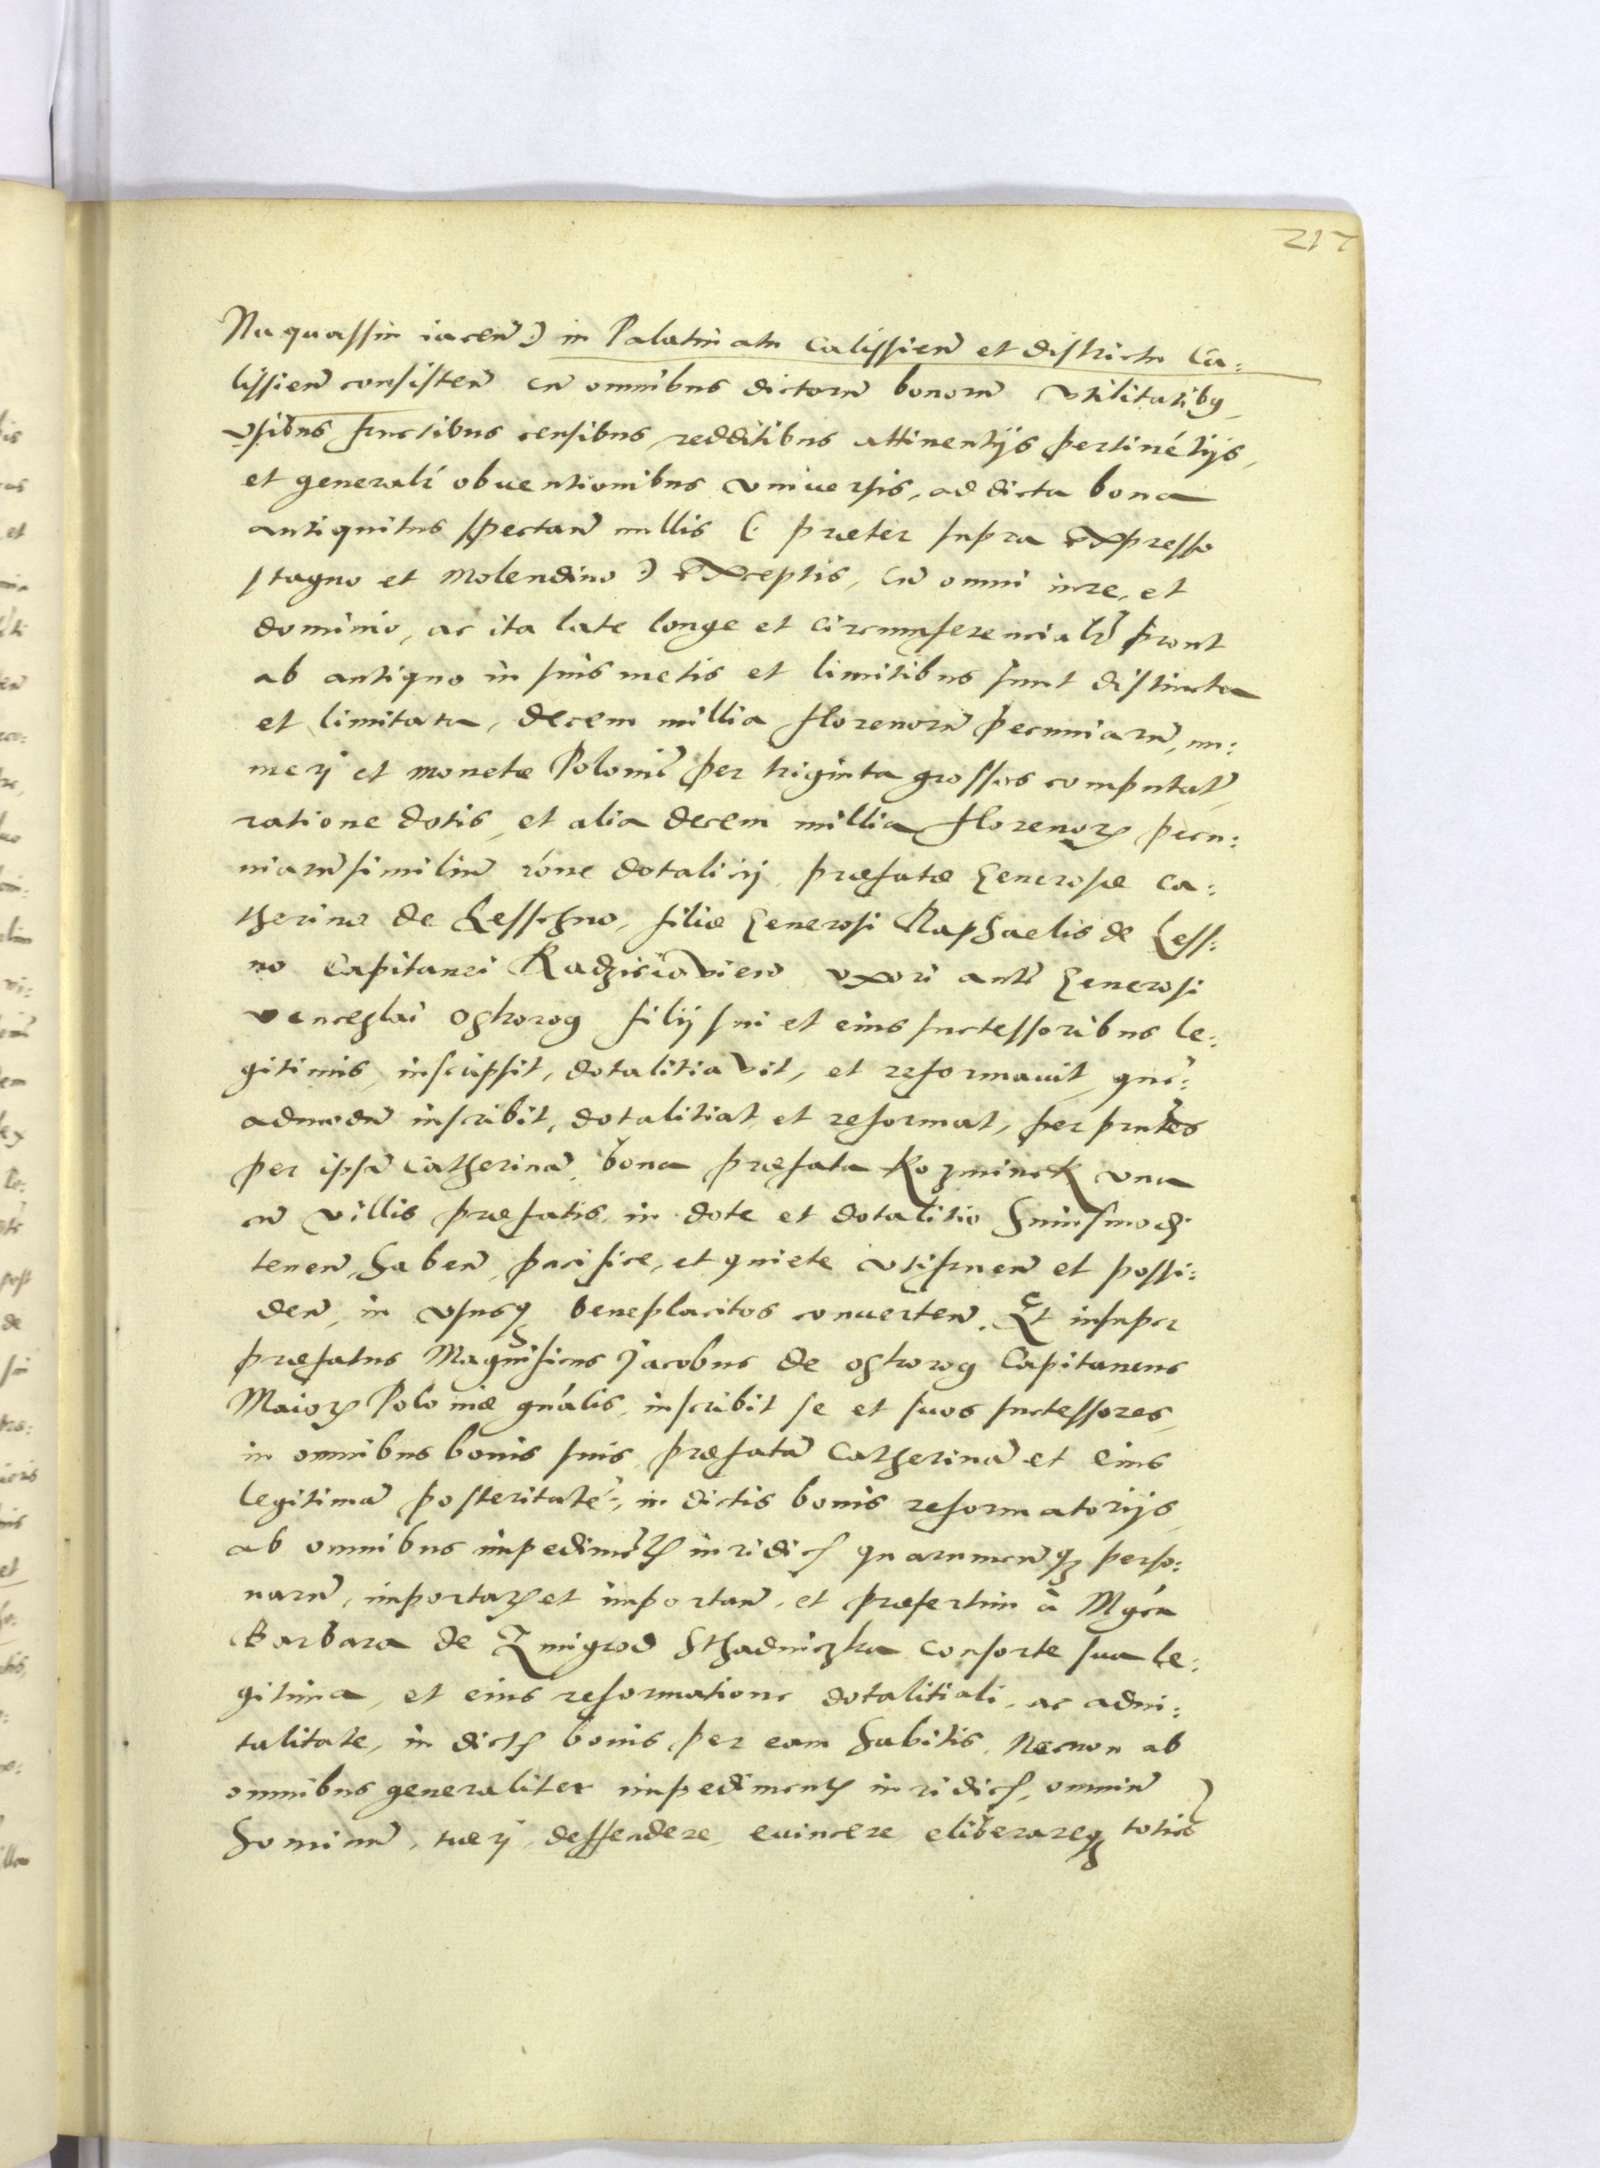 217
Nu quassin iacen̄ :) in Palatinatu Calissien̄ et districtu Ca:
lissien̄ consisten̄ cū omnibus dictorū bonorū vtilitatibꝫ,
vsibus fructibus censibus, redditibus attinentijs pertinétijs,
et generalí obuentionibus vniuersis, ad dicta bona
antiquitus spectan̄ nullis (: præter supra expresso
stagno et Molendino :) exceptis, cū omni iure, et
dominio, ac ita late longe et circumferencialr̄ prout
ab antiquo in suis metis et limitibus sunt distincta
et limitata, decem millia florenorū pecuniarū, nu:
merj et monetæ Poloniē per triginta grossos computat̄,
ratione dotis, et alia decem millia florenoꝝ pecu:
niarū similiū róne dotalicij præfatæ Generosæ Ca:
therinæ de Lesschno, filiæ Generosi Raphaelis de Less:
no Capitanei Radzieiovien̄ vxori autē Generosi
venceslai Ostrorog filij sui et eius successoribus le:
gitimis, inscripsit, dotalitiavit, et reformauit quē:
admodū inscribit, dotalitiat, et reformat, per pntes
per ipsā Catherinā, bona præfata Kozminek vna
cū villis præfatis, in dote et dotalitio huiusmodi
tenen̄, haben̄, pacifice, et quiete vtifruen̄ et possi:
den̄, in vsusqꝫ beneplacitos conuerten̄. Et insuper
præfatus Magnificus Jacobus de ostrorog Capitaneus
Maioꝝ Poloniæ gnális, inscribit se et suos successores,
in omnibus bonis suis, præfatā Catherinā et eius
legitimā posteritaté, in dictis bonis reformatorijs,
ab omnibus impedimētꝭ iuridicꝭ quarumcūqꝫ perso:
narū, importaꝝ et importan̄, et præsertim à Mgcá
Barbara de Zmigrod Sthadniczka consorte sua le:
gitima, et eius reformatione dotalitiali, ac advi:
talitate, in dictꝭ bonis per eam habitis, Necnon ab
omnibus generaliter impedimentꝭ iuridicꝭ, omniū
hominū, tuerj deffendere euincere eliberareqꝫ toties